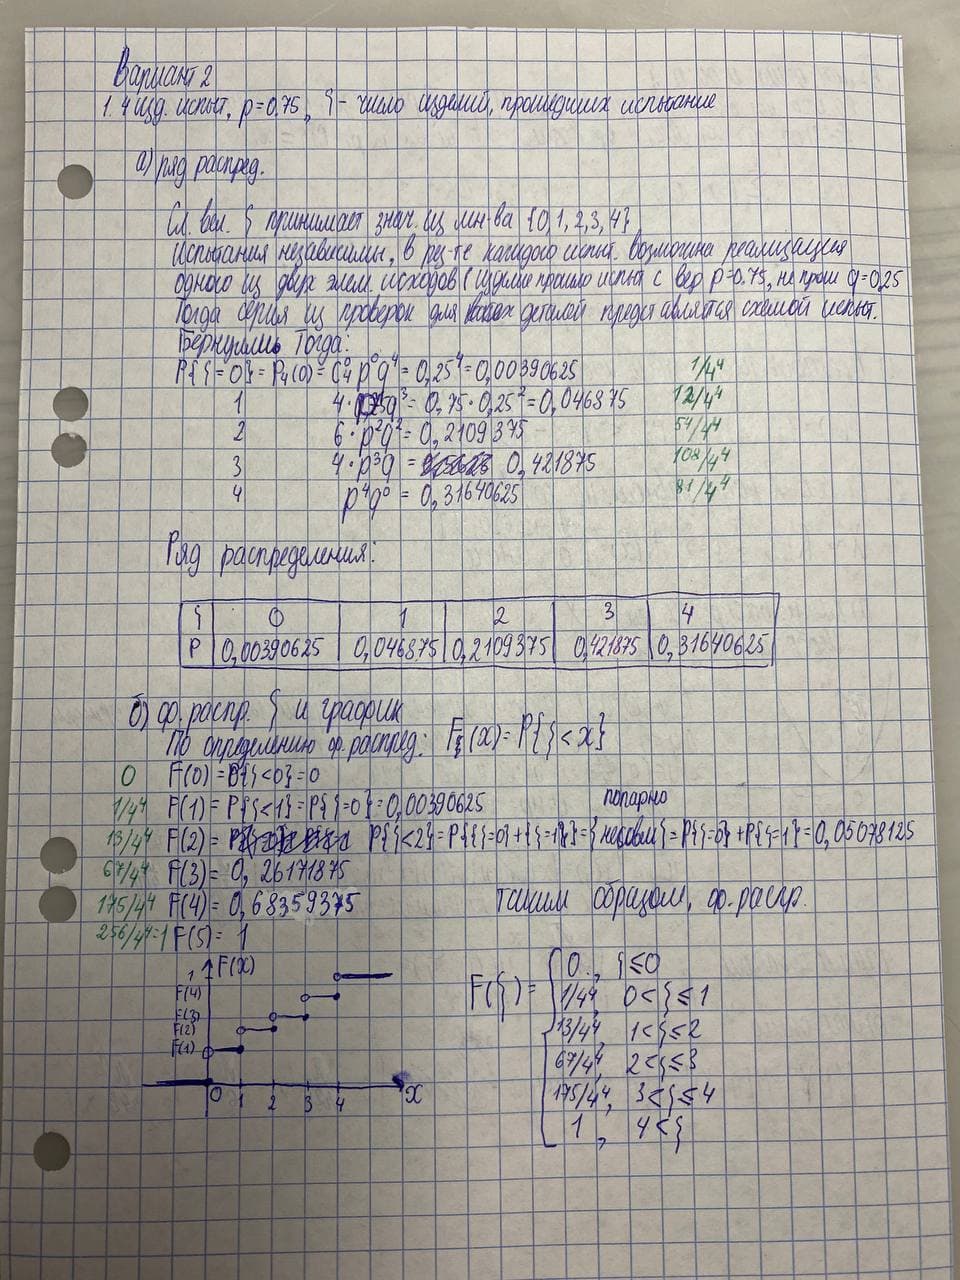 Вариант 2
1. 4 изд. испыт, p=0.75, ξ - число изделий, прошедших испытание
а) ряд распред.
Сл. вел. ξ принимает знач. из мн-ва {0, 1, 2, 3, 4}
Испытания независимы, в рез-те каждого испыт. возможна реализация
одного из двух элем. исходов (изделие прошло испыт с вер p=0.75, не прош q=0,25
Тогда серия из проверок для деталей представляется схемой испыт.
Бернулли Тогда:
P{ξ=0} = P₄(0) = C₄⁰ p⁰q⁴ = 0,25⁴ = 0,00390625 1/4⁴
1 4·p q³ = 0,75·0,25² = 0,046875 12/4⁴
2 6·p²q² = 0,2109375 54/4⁴
3 4·p³q = 0,421875 108/4⁴
4 p⁴q⁰ = 0,31640625 81/4⁴
Ряд распределения:
ξ 0 1 2 3 4
P 0,00390625 0,046875 0,2109375 0,421875 0,31640625
б) ф. распр. ξ и график
По определению ф. распред: Fξ(x) = P{ξ<x}
0 F(0) = P{ξ<0} = 0
1/4⁴ F(1) = P{ξ<1} = P{ξ=0} = 0,00390625
попарно
13/4⁴ F(2) = P{ξ<2} = P{{ξ=0}+{ξ=1}} = {несовм} = P{ξ=0} + P{ξ=1} = 0,05078125
67/4⁴ F(3) = 0,26171875
175/4⁴ F(4) = 0,68359375
таким образом, ф. распр.
256/4⁴=1 F(5) = 1
F(x)
1
F(4)
F(3)
F(2)
F(1)
0 1 2 3 4 x
F(ξ) =
0, ξ≤0
1/4⁴, 0<ξ≤1
13/4⁴, 1<ξ≤2
67/4⁴, 2<ξ≤3
175/4⁴, 3<ξ≤4
1, 4<ξ